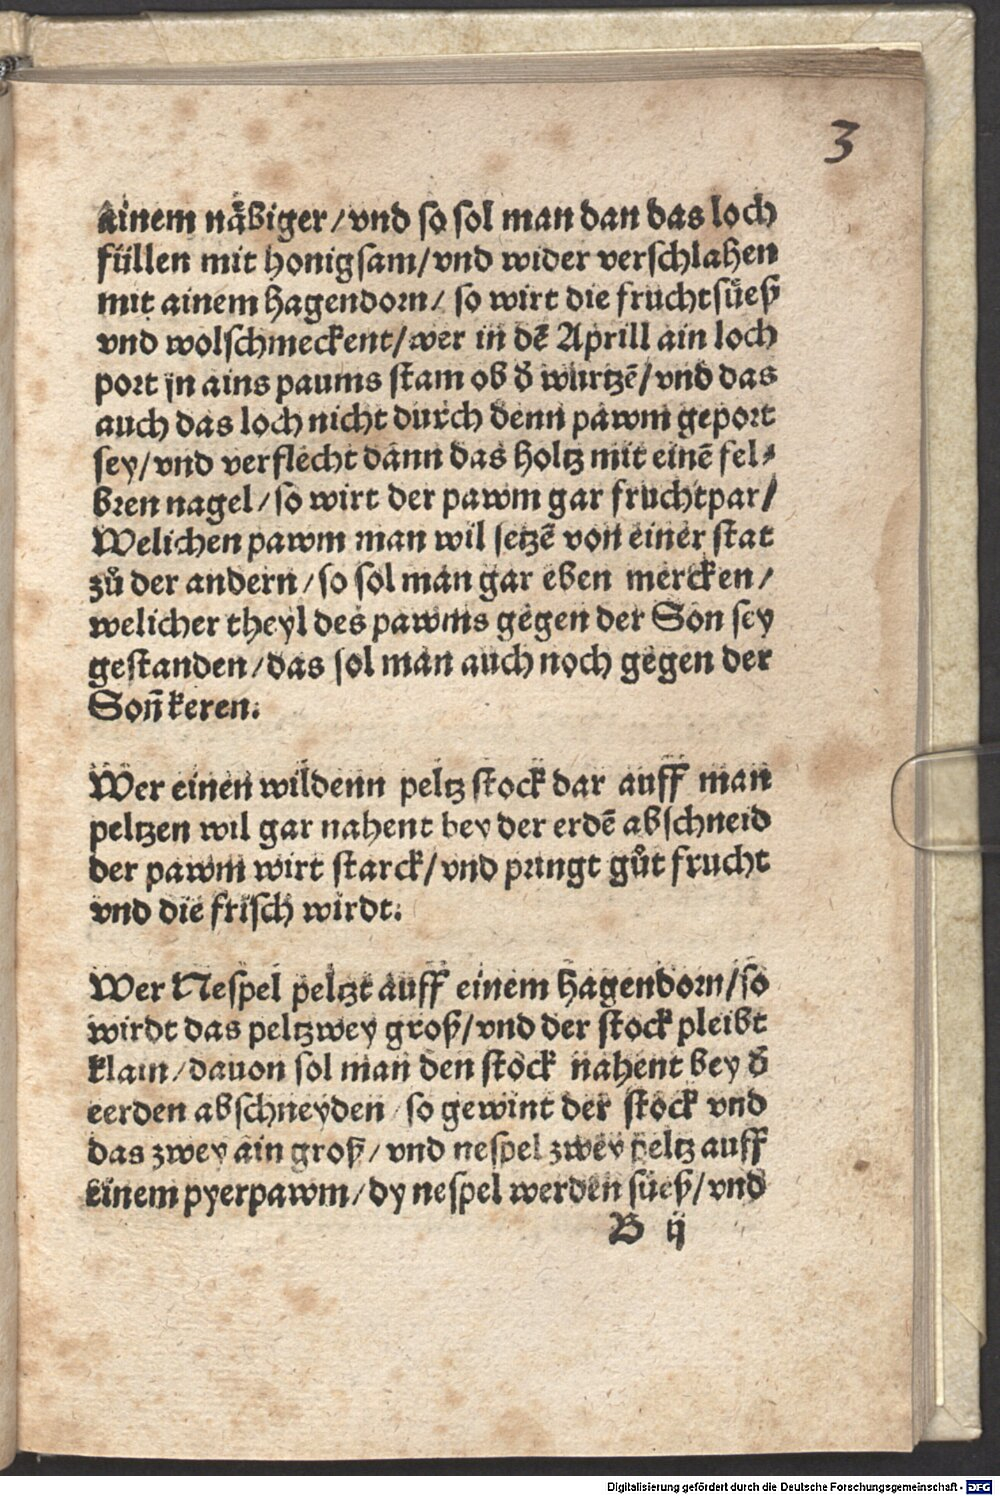 3
ainem näbiger/vnd so sol man dan das loch
füllen mit honigsam/vnd wider verschlahen
mit ainem hagendorn/ so wirt die frucht süeß
vnd wolschmeckent/wer in dē Aprill ain loch
port jn ains paums stam ob d̄ wurtzē/vnd das
auch das loch nicht durch denn pawm geport
sey/vnd verflecht dann das holtz mit einē fel⸗
bren nagel/so wirt der pawm gar fruchtpar/
Welichen pawm man wil setzē von einer stat
zů der andern/so sol man gar eben mercken/
welicher theyl des pawms gegen der Son sey
gestanden/das sol man auch noch gegen der
Son̄ keren.
Wer einen wildenn peltz stock dar auff man
peltzen wil gar nahent bey der erdē abschneid
der pawm wirt starck/vnd pringt gůt frucht
vnd die frisch wirdt.
Wer Nespel peltzt auff einem hagendorn/so
wirdt das peltzwey groß/vnd der stock pleibt
klain/dauon sol man den stock nahent bey d̄
eerden abschneyden/so gewint der stock vnd
das zwey ain groß/vnd nespel zwey peltz auff
einem pyerpawm/dy nespel werden süeß/vnd
B ij
Digitalisierung gefördert durch die Deutsche Forschungsgemeinschaft - DFG